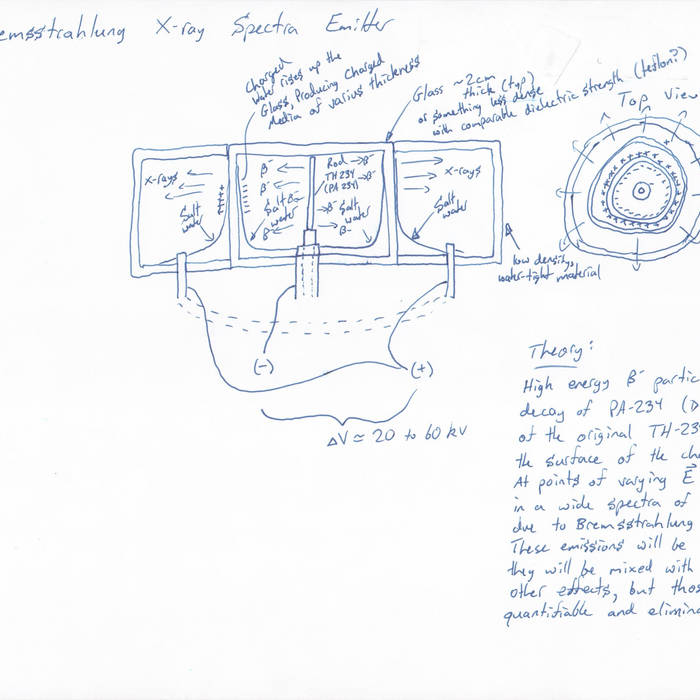 emsstrahlung X-ray Spectra Emitter
Charged
water rises up the
Glass, Producing Charged
Media of varius thickness
Glass ~2cm
thick (typ)
or something less dense
with comparable dielectric strength (teslon?)
Top View
X-rays
Salt
water
+++++
B-
B-
Salt B-
water
B-
Rod → B-
TH234 → B-
(PA234)
→ B- Salt
water
B-
X-rays
Salt
water
low density,
water-tight material
(-)
(+)
ΔV ≃ 20 to 60 kV
Theory:
High energy B- partic
decay of PA-234 (D
of the original TH-23
the surface of the cha
At points of varying E
in a wide spectra of
due to Bremsstrahlung
These emissions will be
they will be mixed with
other effects, but thos
quantifiable and elimin